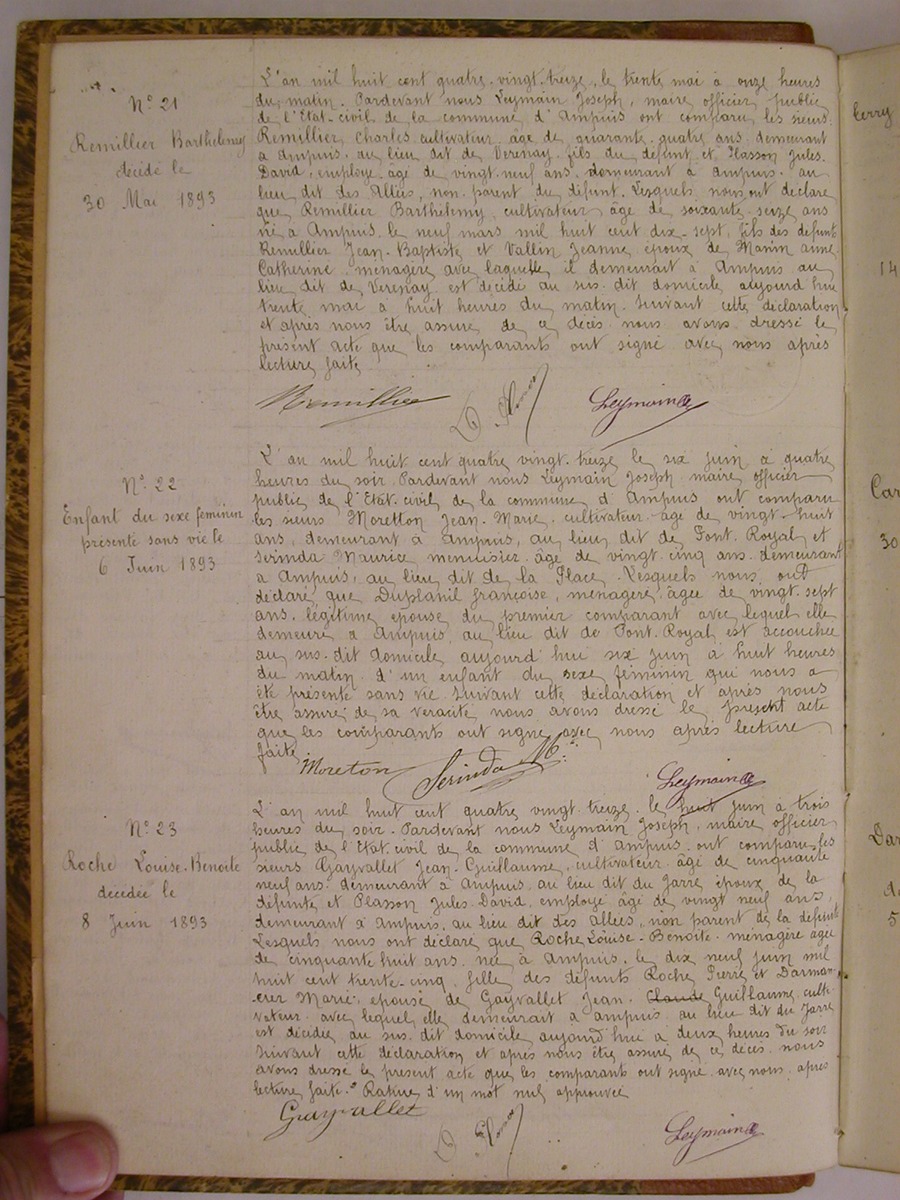 N° 21
Remillier Barthélemy
décédé le
30 Mai 1893
L'an mil huit cent quatre-vingt-treize, le trente mai à onze heures
du matin. Pardevant nous Leymain Joseph, maire officier public
de l'Etat-civil de la commune d'Ampuis ont comparu les sieurs
Remillier Charles cultivateur âgé de quarante-quatre ans demeurant
à Ampuis au lieu dit de Verenay fils du défunt et Plasson Jules
David, employé âgé de vingt-neuf ans demeurant à Ampuis au
lieu dit des Allées, non parent du défunt. Lesquels nous ont déclaré
que Remillier Barthélemy, cultivateur âgé de soixante-seize ans
né à Ampuis le neuf mars mil huit cent dix-sept, fils des défunts
Remillier Jean-Baptiste et Vallin Jeanne époux de Manin anne
Catherine ménagère avec laquelle il demeurait à Ampuis au
lieu dit de Verenay est décédé au sus-dit domicile aujourd'hui
trente mai à huit heures du matin. Suivant cette déclaration
et après nous être assuré de ce décès nous avons dressé le
présent acte que les comparants ont signé avec nous après
lecture faite
Remillier
Leymain
N° 22
Enfant du sexe féminin
présenté sans vie le
6 Juin 1893
L'an mil huit cent quatre vingt-treize le six juin à quatre
heures du soir. Pardevant nous Leymain Joseph maire officier
public de l'Etat-civil de la commune d'Ampuis ont comparu
les sieurs Moretton Jean-Marie, cultivateur âgé de vingt-huit
ans, demeurant à Ampuis, au lieu dit de Pont-Royal et
Serinda Maurice menuisier âgé de vingt-cinq ans demeurant
à Ampuis, au lieu dit de la Place. Lesquels nous ont
déclaré que Duplanil françoise, ménagère âgée de vingt-sept
ans légitime épouse du premier comparant avec lequel elle
demeure à Ampuis au lieu dit de Pont-Royal est accouchée
au sus-dit domicile aujourd'hui six juin à huit heures
du matin d'un enfant du sexe féminin qui nous a
été présenté sans vie suivant cette déclaration et après nous
être assuré de sa véracité nous avons dressé le présent acte
que les comparants ont signé avec nous après lecture
faite
Moreton Serinda M.
Leymain
N° 23
Roche Louise-Benoite
décédée le
8 Juin 1893
L'an mil huit cent quatre vingt-treize le huit juin à trois
heures du soir. Pardevant nous Leymain Joseph, maire officier
public de l'Etat civil de la commune d'Ampuis ont comparu les
sieurs Gayvallet Jean-Guillaume, cultivateur âgé de cinquante
neuf ans demeurant à Ampuis au lieu dit du Jarre époux de la
défunte et Plasson Jules-David, employé âgé de vingt neuf ans,
demeurant à Ampuis, au lieu dit des Allées, non parent de la défunte
Lesquels nous ont déclaré que Roche Louise-Benoite ménagère âgée
de cinquante huit ans née à Ampuis le dix neuf juin mil
huit cent trente-cinq fille des défunts Roche Pierre et Darman-
cier Marie, épouse de Gayvallet Jean Claude Guillaume culti-
vateur avec lequel elle demeurait à Ampuis au lieu dit du Jarre
est décédée au sus-dit domicile aujourd'hui à deux heures du soir
Suivant cette déclaration et après nous être assuré de ce décès nous
avons dressé le présent acte que les comparants ont signé avec nous après
lecture faite. Rature d'un mot nul approuvée
Gayvallet
Leymain
14
Car
30
Dar
5